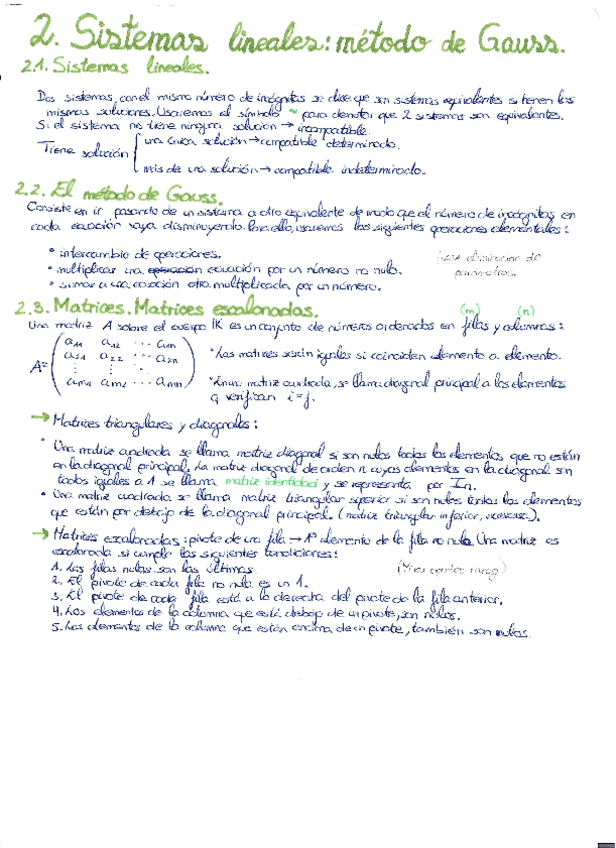 2. Sistemas lineales: método de Gauss.
2.1. Sistemas lineales.
Dos sistemas con el mismo número de incógnitas se dice que son sistemas equivalentes si tienen las
mismas soluciones. Usaremos el símbolo ~ para denotar que 2 sistemas son equivalentes.
Si el sistema no tiene ninguna solución → incompatible.
Tiene solución { una única solución → compatible determinado.
más de una solución → compatible indeterminado.
2.2. El método de Gauss.
Consiste en ir pasando de un sistema a otro equivalente de modo que el número de incógnitas en
cada ecuación vaya disminuyendo. Para ello, usaremos las siguientes operaciones elementales:
• intercambio de operaciones.
• multiplicar una operación ecuación por un número no nulo.
• sumar a una ecuación otra multiplicada por un número.
eliminación de
parámetros.
2.3. Matrices. Matrices escalonadas.
(m) (n)
Una matriz A sobre el cuerpo IK es un conjunto de números ordenados en filas y columnas:
A= ( a11 a12 ... a1n
a21 a22 ... a2n
⋮ ⋮ ⋱ ⋮
am1 am2 ... amn )
• Las matrices serán iguales si coinciden elemento a elemento.
• En una matriz cuadrada, se llama diagonal principal a los elementos
q verifican i=j.
→ Matrices triangulares y diagonales:
• Una matriz cuadrada se llama matriz diagonal si son nulos todos los elementos que no están
en la diagonal principal. La matriz diagonal de orden n cuyos elementos en la diagonal son
todos iguales a 1 se llama matriz identidad y se representa por In.
• Una matriz cuadrada se llama matriz triangular superior si son nulos todos los elementos
que están por debajo de la diagonal principal. (matriz triangular inferior, viceversa).
→ Matrices escalonadas: pivote de una fila → 1º elemento de la fila no nulo. Una matriz es
escalonada si cumple las siguientes condiciones:
1. Las filas nulas son las últimas.
2. El pivote de cada fila no nula es un 1.
3. El pivote de cada fila está a la derecha del pivote de la fila anterior.
4. Los elementos de la columna que está debajo de un pivote, son nulos.
5. Los elementos de la columna que están encima de un pivote, también son nulos.